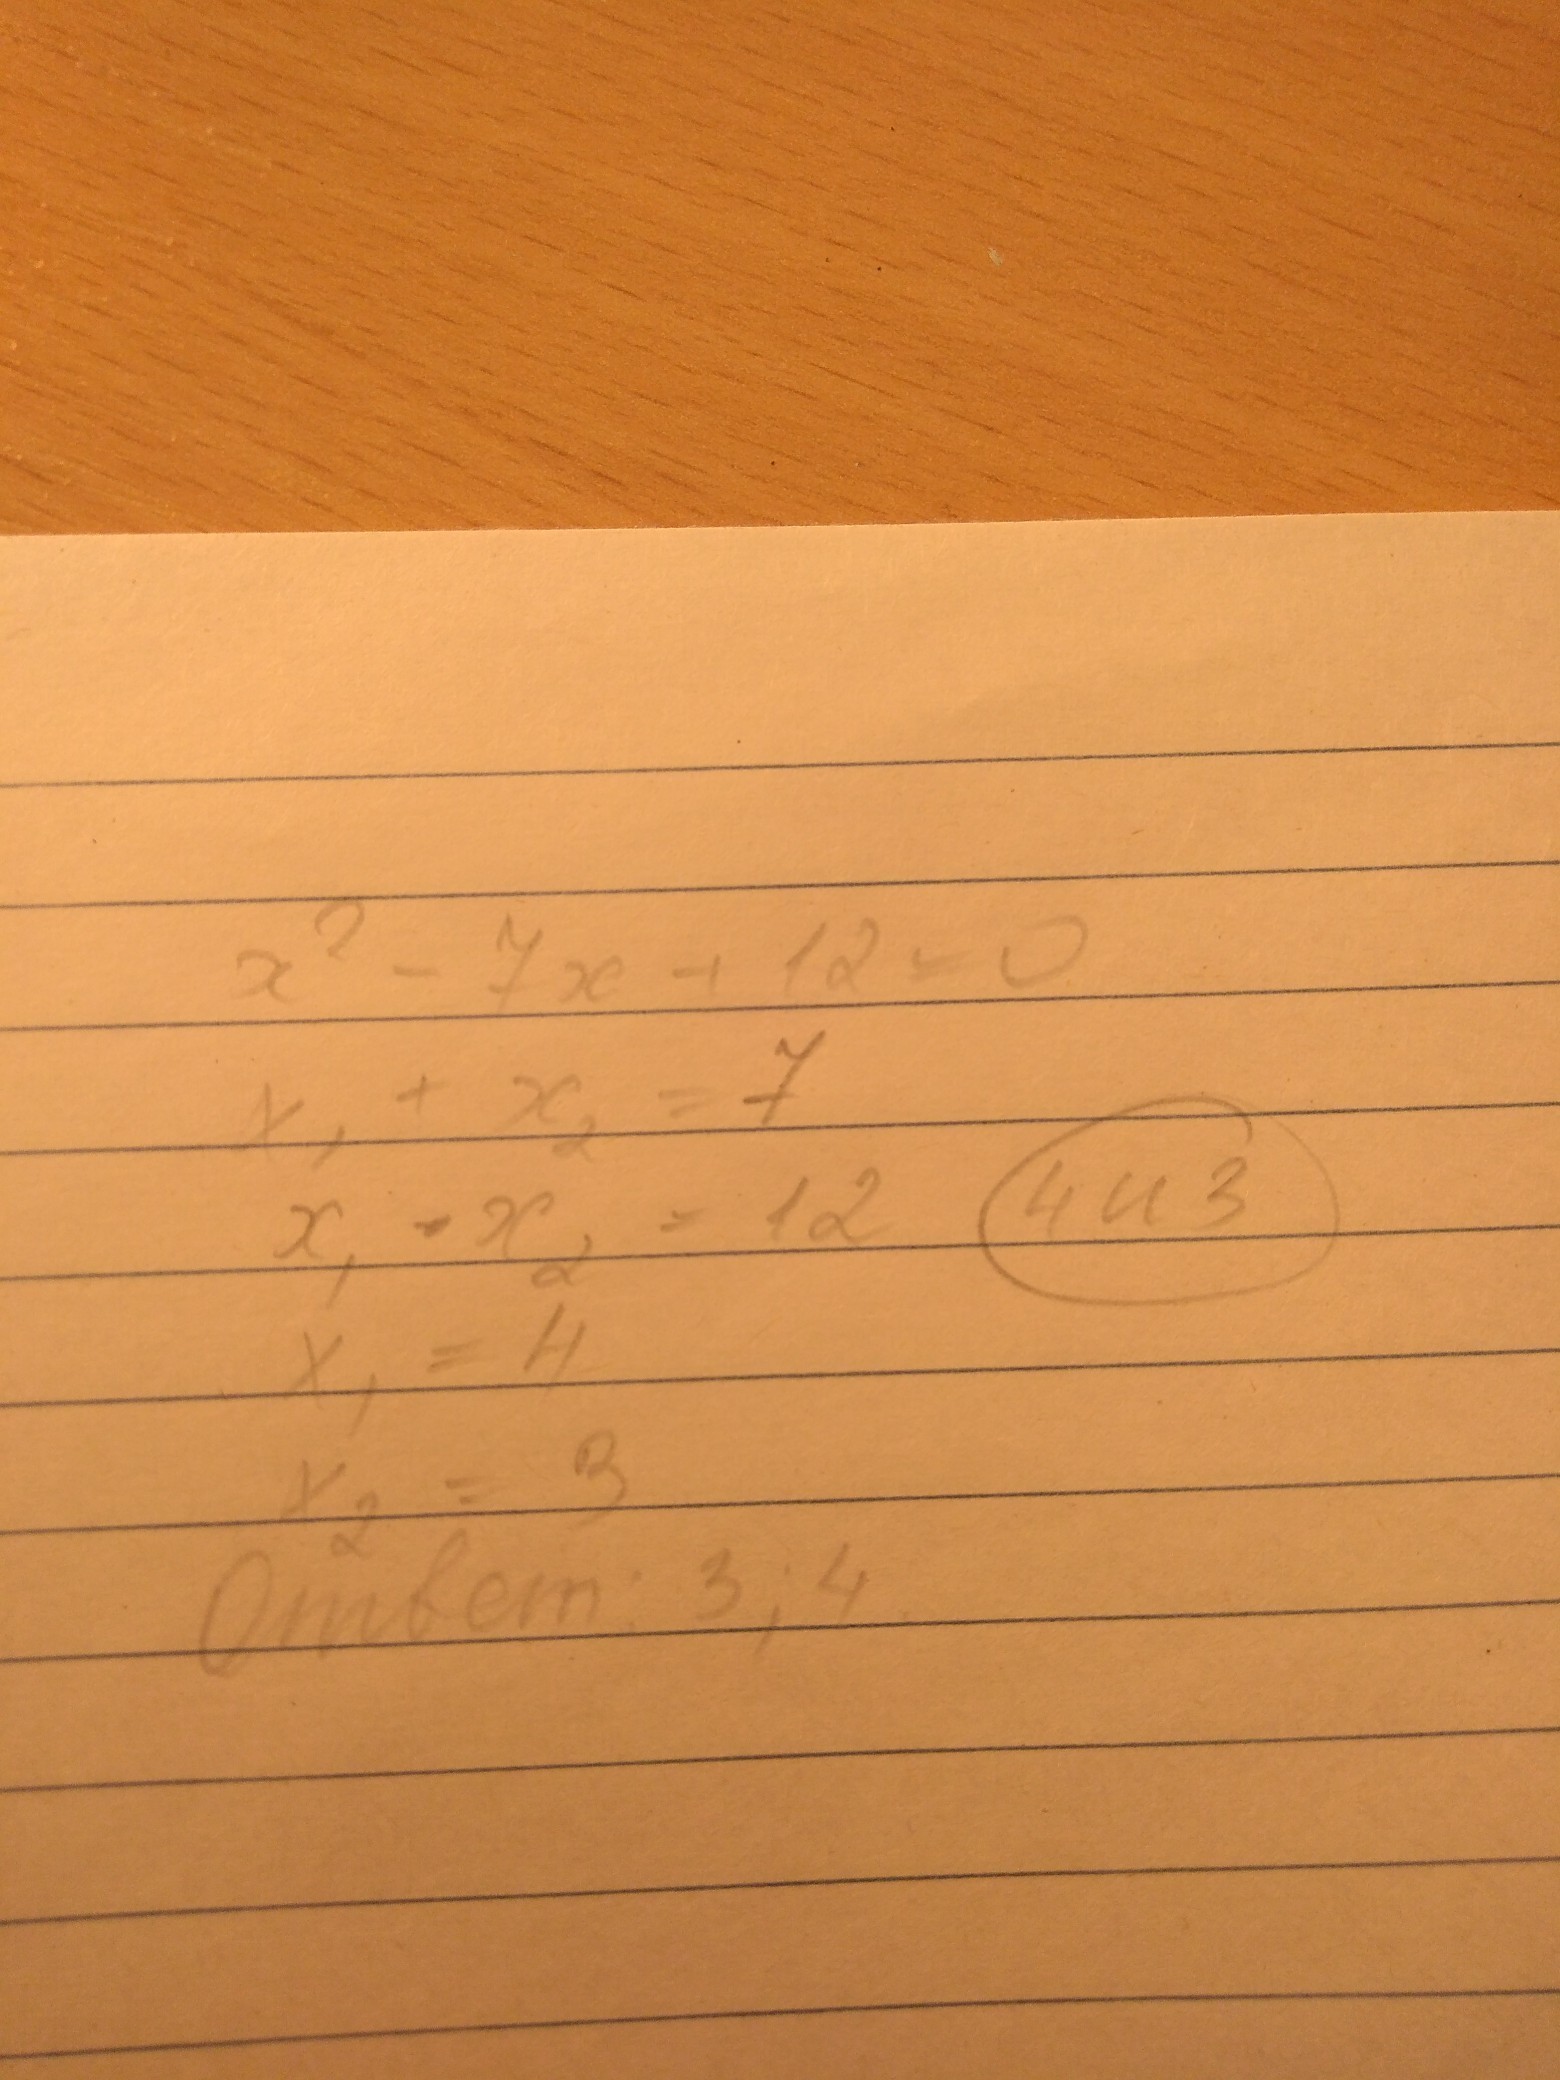 x² - 7x + 12 = 0
x₁ + x₂ = 7
x₁ · x₂ = 12 4 и 3
x₁ = 4
x₂ = 3
Ответ: 3; 4.